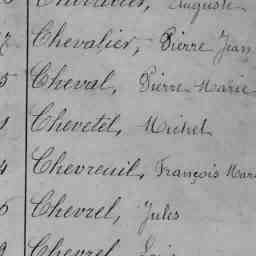 Chevalier, Auguste
2 Chevalier, Pierre Jean
5 Cheval, Pierre Marie
1 Chevetel, Michel
4 Chevreuil, François Mar
6 Chevrel, Jules
9 Chevrel,